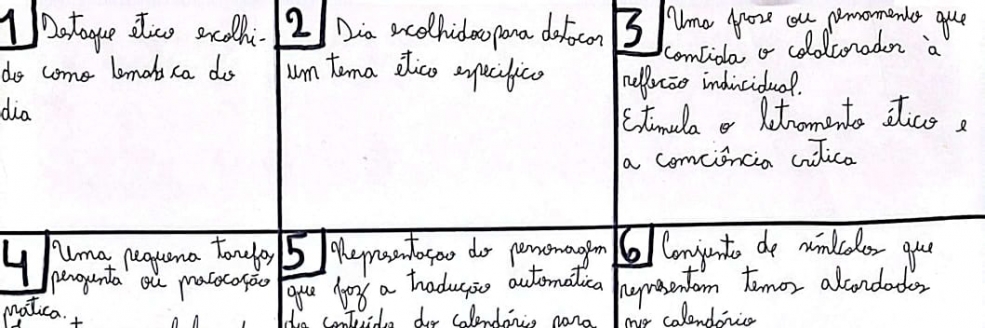 1 Destaque ético escolhi-
do como temática do
dia
2 Dia escolhidos para destacar
um tema ético específico
3 Uma frase ou pensamento que
convida o colaborador à
reflexão individual.
Estimula o letramento ético e
a consciência crítica
4 Uma pequena tarefa,
pergunta ou provocação
prática.
5 Representação do personagem
que faz a tradução automática
do conteúdo do calendário para
6 Conjunto de símbolos que
representam temas abordados
no calendário